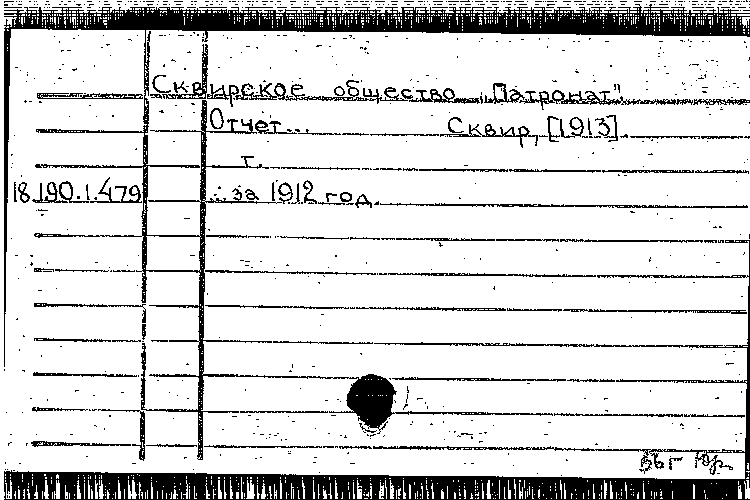 Сквирское общество „Патронат"
Отчет... Сквир, [1913].
т.
18.190.1.479 ...за 1912 год.